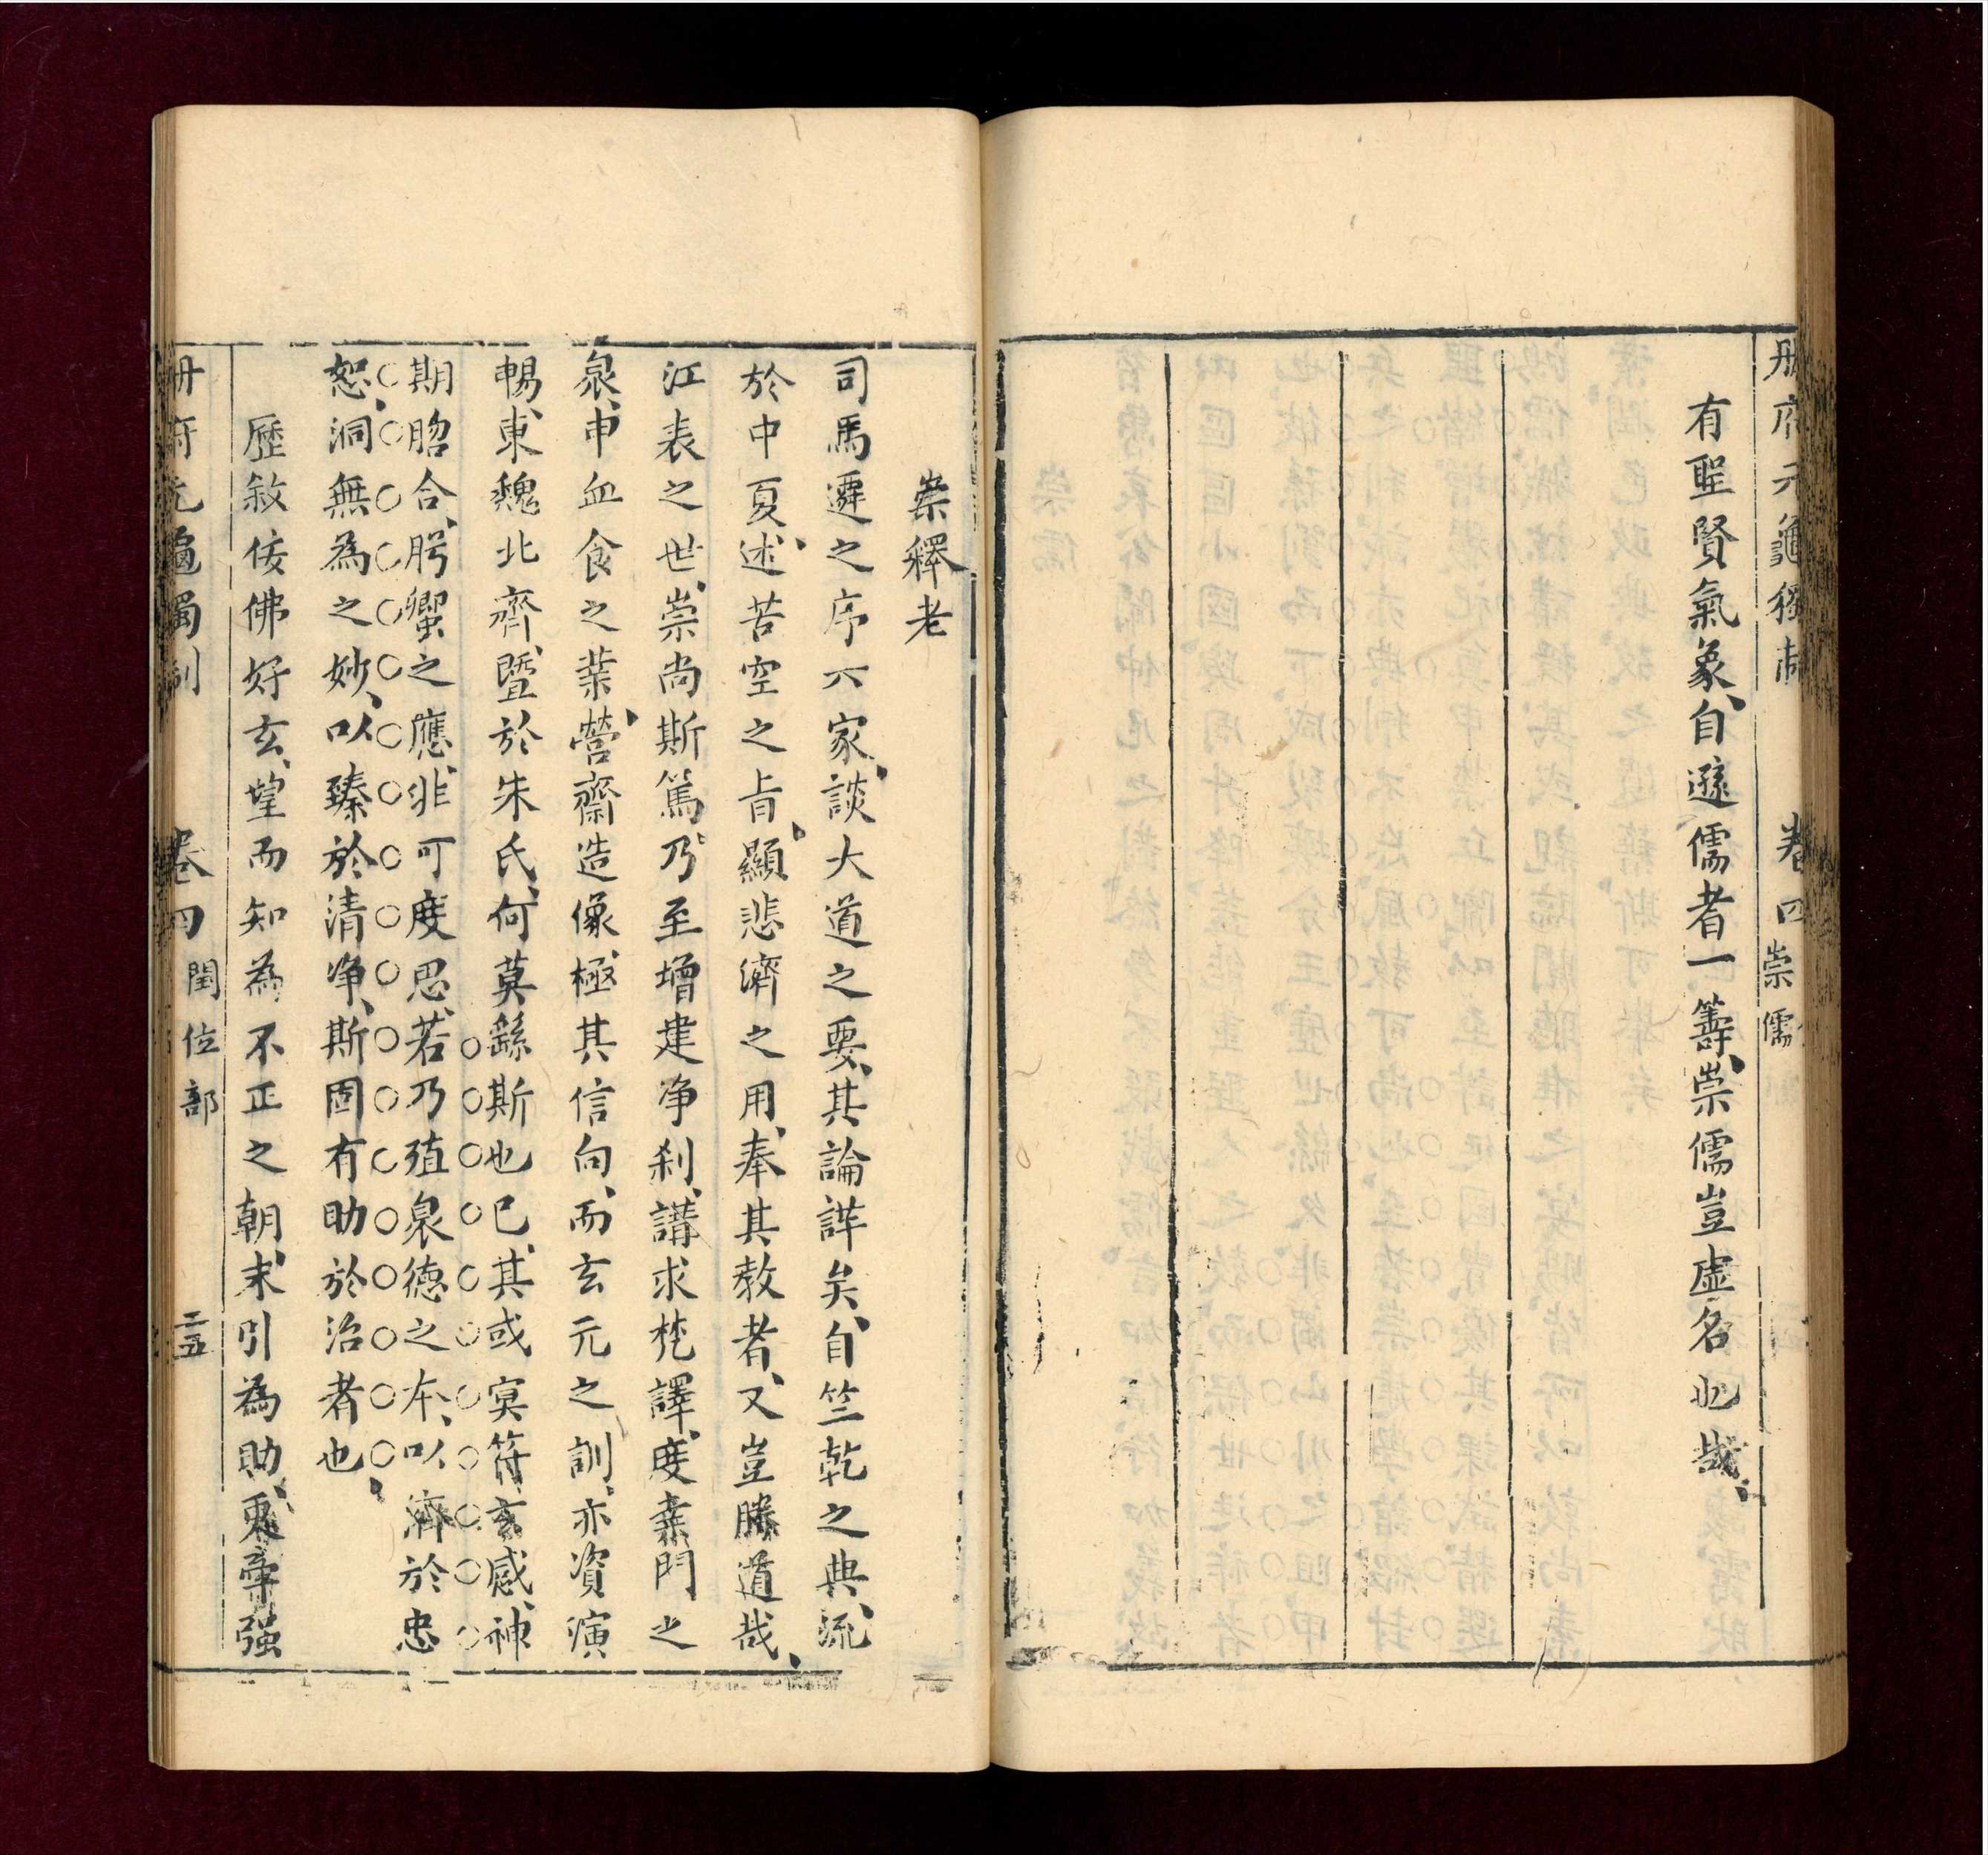 册府元龜獨制 卷四 崇儒
有聖賢氣象、自遜儒者一籌、崇儒豈虛名也哉、
崇釋老
司馬遷之序六家、談大道之要、其論詳矣、自竺乾之典、流
於中夏、述苦空之旨、顯悲濟之用、奉其教者、又豈勝道哉、
江表之世、崇尚斯篤、乃至增建淨刹、講求梵譯、度桒門之
衆、申血食之業、營齋造像、極其信向、而玄元之訓、亦資演
暢、東魏北齊、曁於朱氏、何莫繇斯也已、其或冥符玄感、神
期脗合、肹蠁之應、非可度思、若乃殖衆德之本、以濟於忠
恕、洞無為之妙、以臻於清淨、斯固有助於治者也、
歷敘佞佛好玄、望而知為不正之朝、末引為助、更牽强
册府元龜獨制 卷四 閏位部 二五